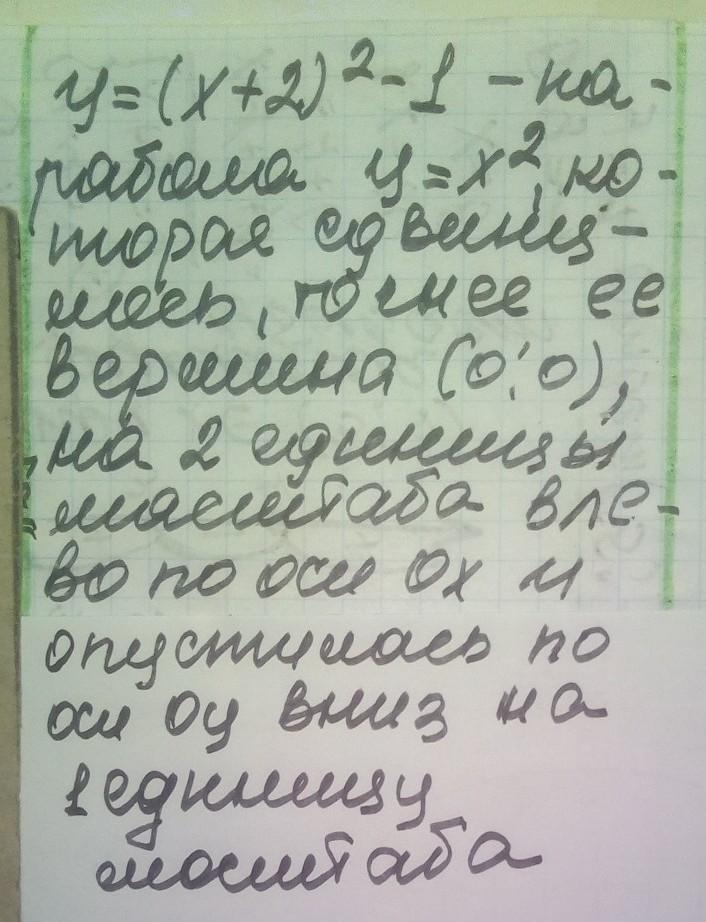 y=(x+2)²-1 - па-
рабола y=x², ко-
торая сдвину-
лась, точнее ее
вершина (0;0),
на 2 единицы
масштаба вле-
во по оси Ox и
опустилась по
оси Oy вниз на
1 единицу
масштаба